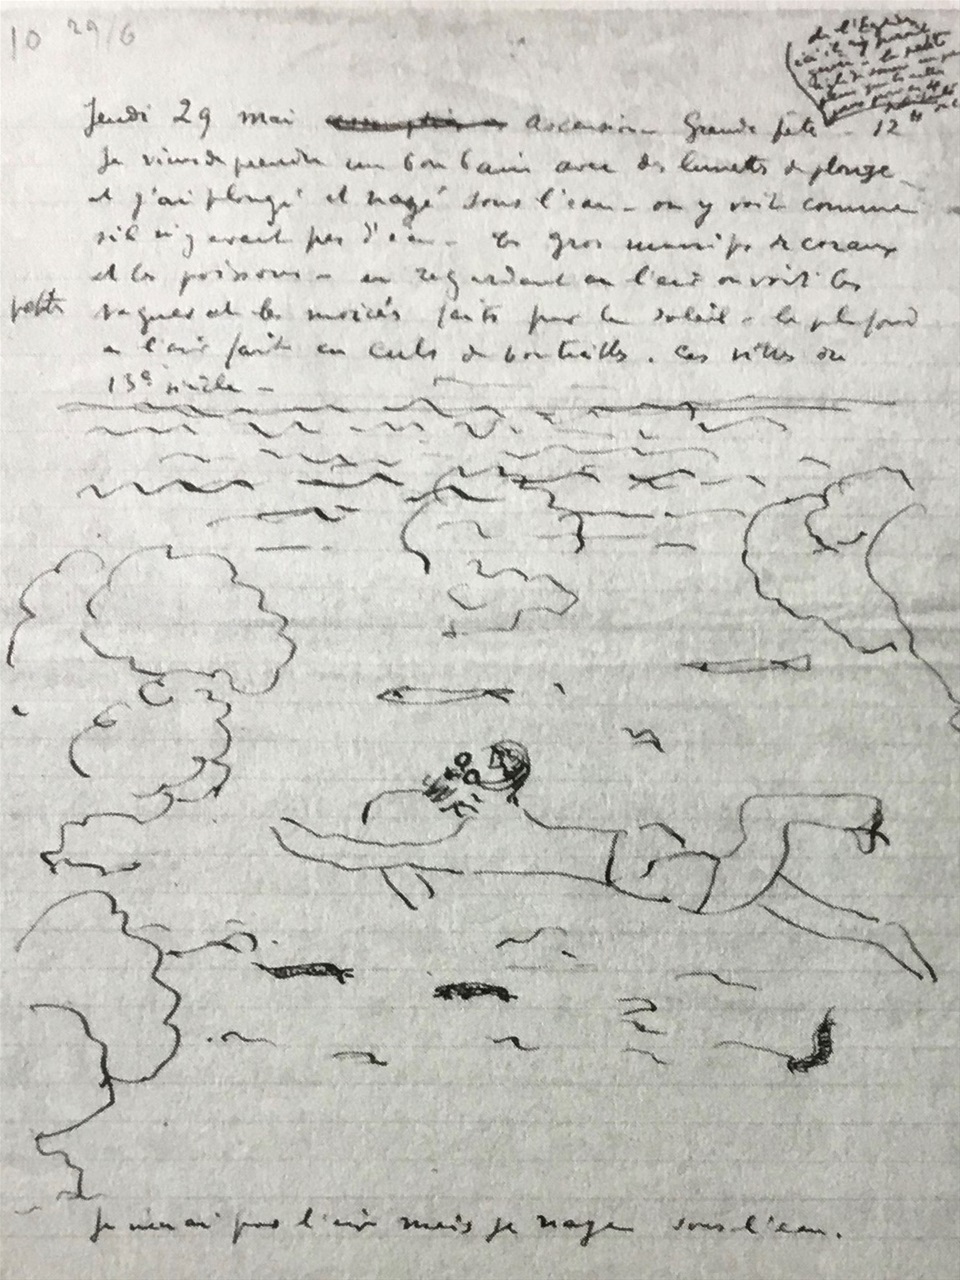 10 29/6
de l'
Jeudi 29 mai Ascension Grande fête - 12 H
Je viens de prendre un bon bain avec des lunettes de plongé
et j'ai plongé et nagé sous l'eau - on y voit comme
s'il n'y avait pas d'eau - les gros massifs de coraux
et les poissons - en regardant en l'air on voit les
petites vagues et les moirés faits par le soleil - le plafond
a l'air fait en culs de bouteilles. Ces vitres du
13e siècle -
Je n'en ai pas l'air mais je nage sous l'eau.